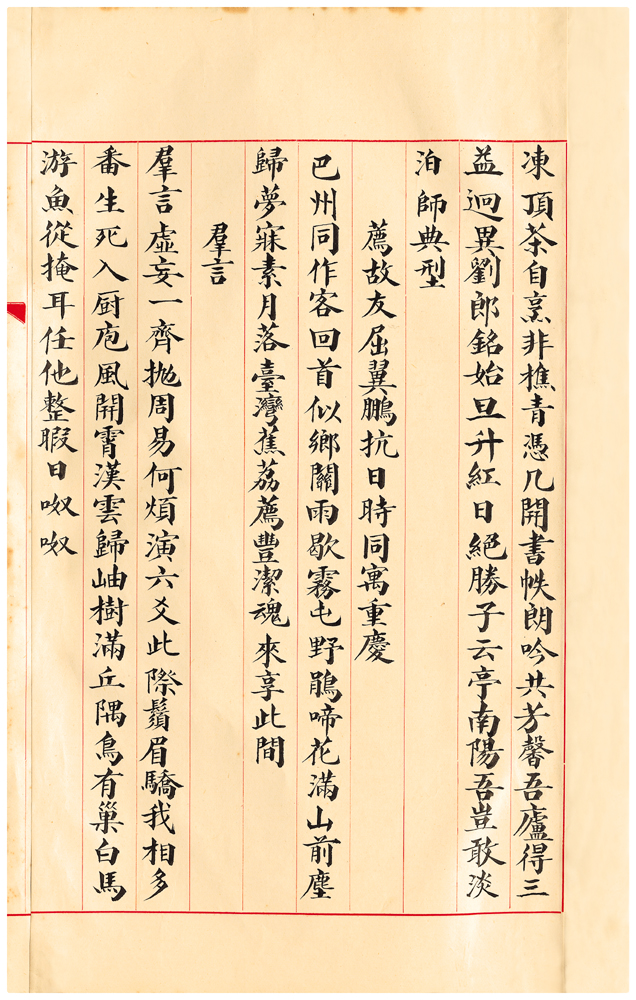 凍頂茶自烹非樵青憑几開書帙朗吟共芳馨吾廬得三
益迥異劉郎銘始旦升紅日絕勝子云亭南陽吾豈敢淡
泊師典型
薦故友屈翼鵬抗日時同寓重慶
巴州同作客回首似鄉關雨歇霧屯野鵑啼花滿山前塵
歸夢寐素月落臺灣蕉荔薦豐潔魂來享此間
羣言
羣言虛妄一齊拋周易何煩演六爻此際鬚眉驕我相多
番生死入厨庖風開霄漢雲歸岫樹滿丘隅鳥有巢白馬
游魚從掩耳任他整暇日呶呶